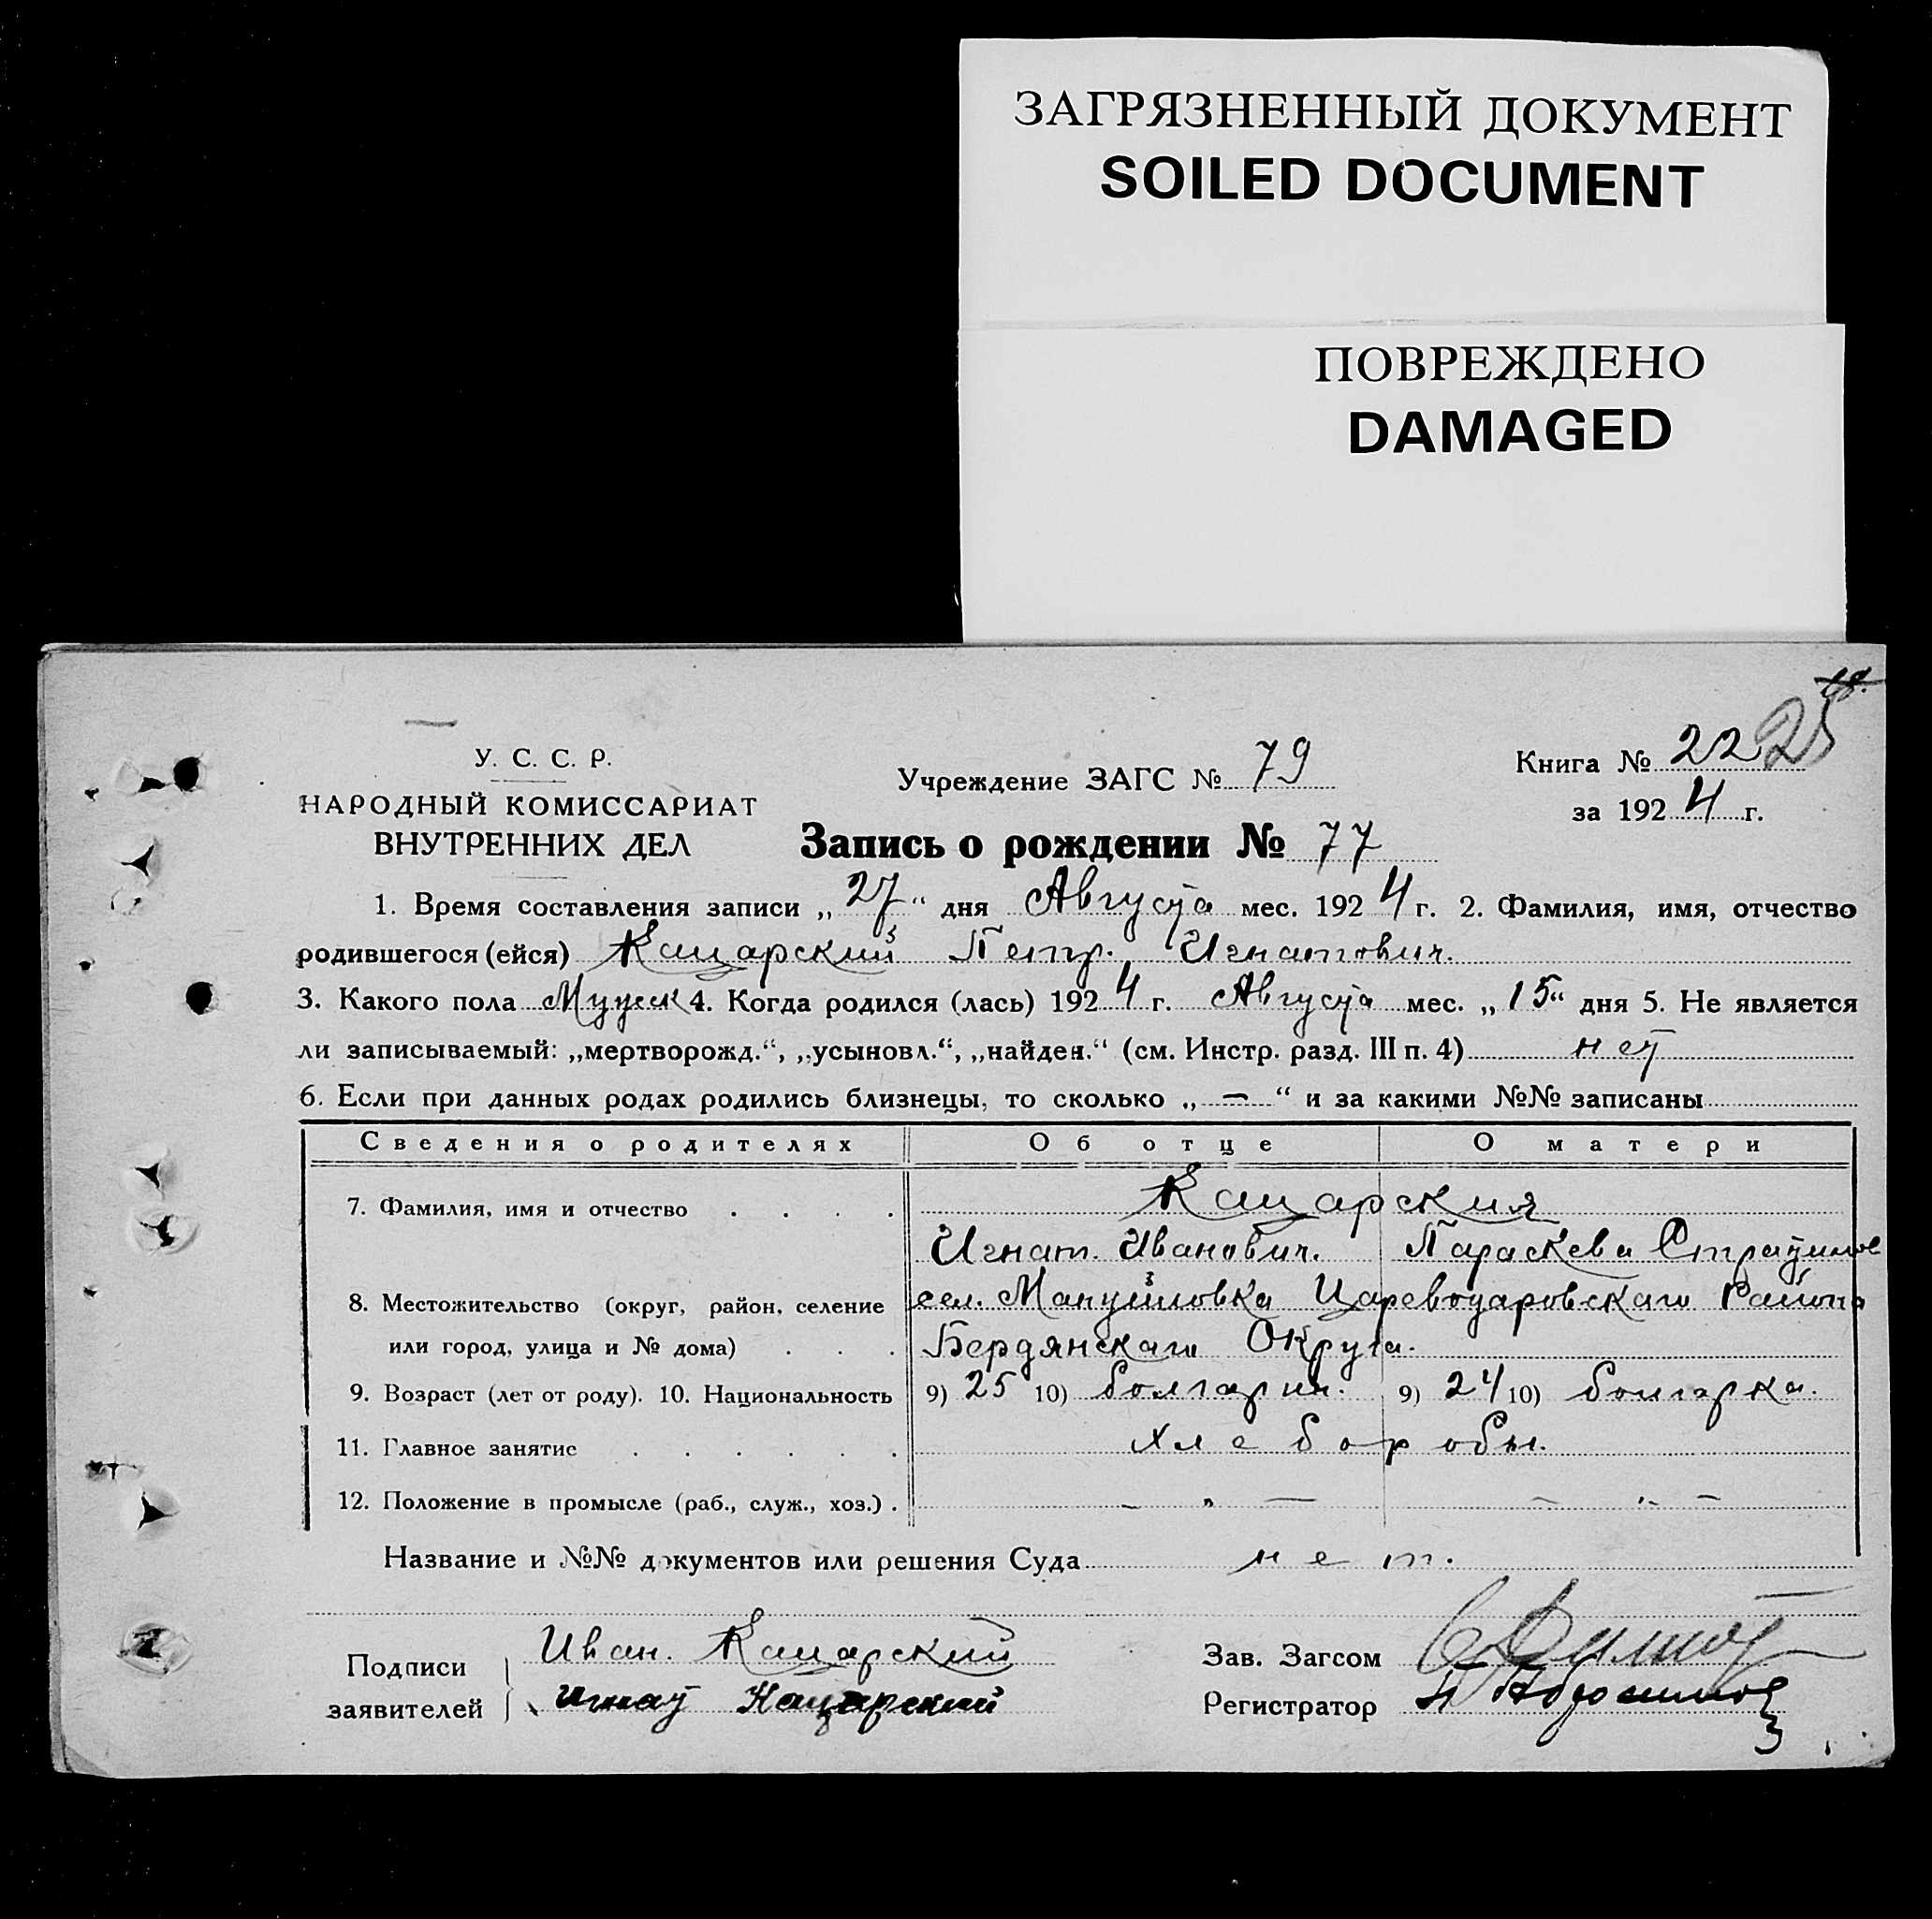 ЗАГРЯЗНЕННЫЙ ДОКУМЕНТ
SOILED DOCUMENT
ПОВРЕЖДЕНО
DAMAGED
У. С. С. Р.
НАРОДНЫЙ КОМИССАРИАТ
ВНУТРЕННИХ ДЕЛ
Учреждение ЗАГС № 79
Книга № 22 25
за 1924 г.
Запись о рождении № 77
1. Время составления записи „27“ дня Августа мес. 1924 г. 2. Фамилия, имя, отчество
родившегося (ейся) Кацарский Петр. Игнатович.
3. Какого пола Мужск 4. Когда родился (лась) 1924 г. Августа мес. „15“ дня 5. Не является
ли записываемый: „мертворожд.“, „усыновл.“, „найден.“ (см. Инстр. разд. III п. 4) нет
6. Если при данных родах родились близнецы, то сколько „—“ и за какими №№ записаны
Сведения о родителях Об отце О матери
7. Фамилия, имя и отчество Кацарския
Игнат. Иванович. Параскева
8. Местожительство (округ, район, селение сел. Мануйловка Цареводаровскаго Района
или город, улица и № дома) Бердянскаго Округа.
9. Возраст (лет от роду). 10. Национальность 9) 25 10) болгарин. 9) 24 10) болгарка.
11. Главное занятие хлеборобы.
12. Положение в промысле (раб., служ., хоз.) . — „ — — „ —
Название и №№ документов или решения Суда нет.
Подписи заявителей
Иван. Кацарский
Игнат Кацарский
Зав. Загсом
Регистратор